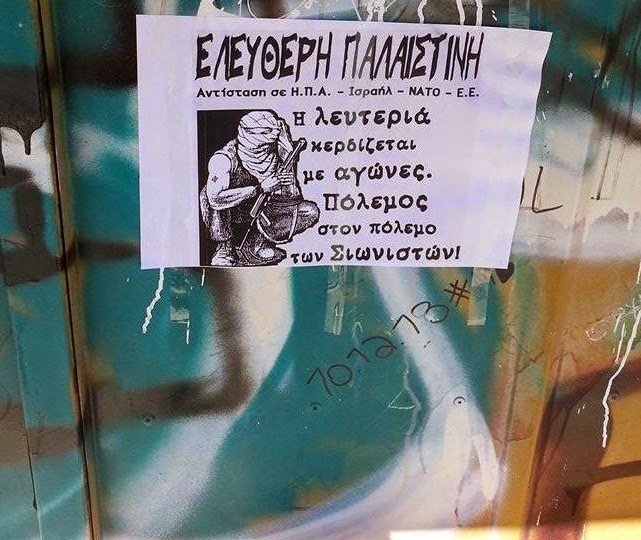 ΕΛΕΥΘΕΡΗ ΠΑΛΑΙΣΤΙΝΗ
Αντίσταση σε Η.Π.Α. - Ισραήλ - ΝΑΤΟ - Ε.Ε.
Η λευτεριά
κερδίζεται
με αγώνες.
Πόλεμος
στον πόλεμο
των Σιωνιστών!
10.12.13#